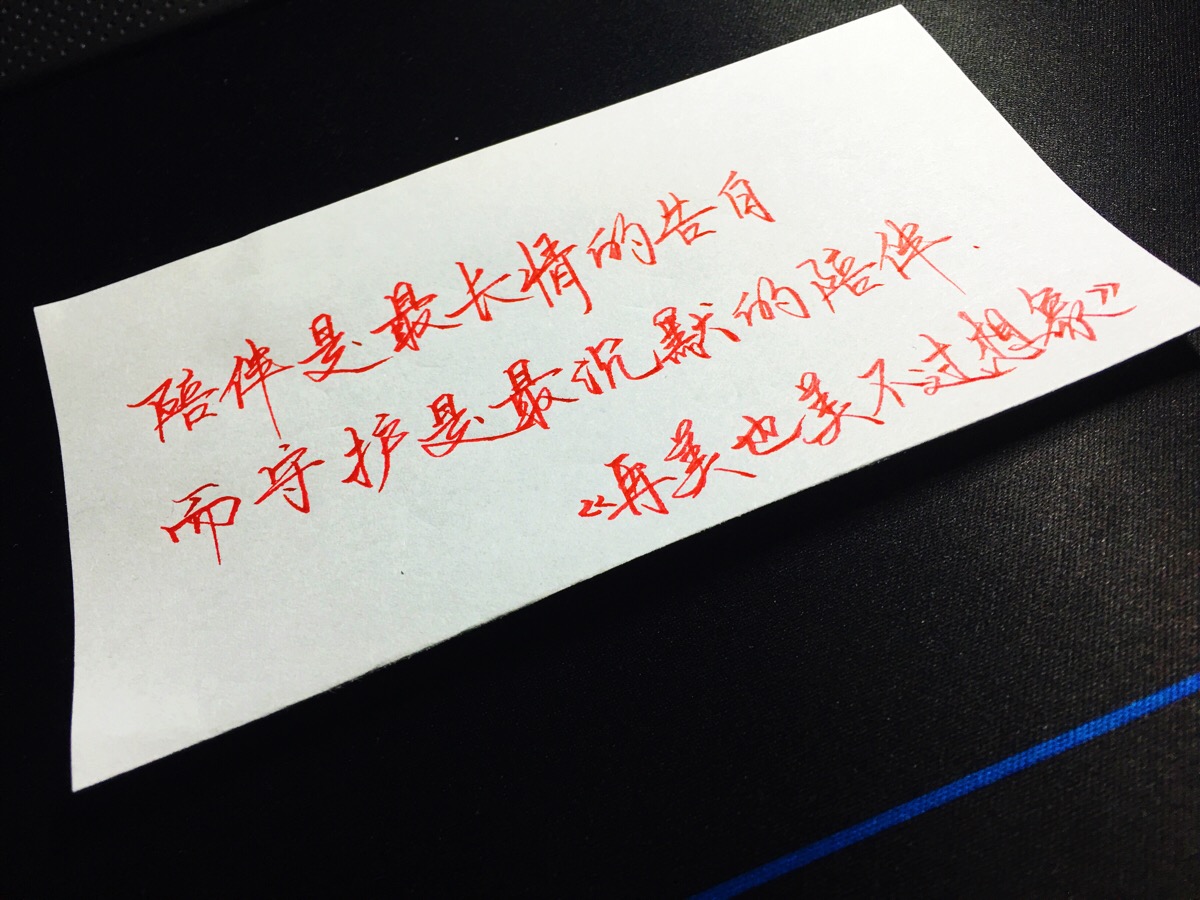 陪伴是最长情的告白
而守护是最沉默的陪伴.
《再美也美不过想象》